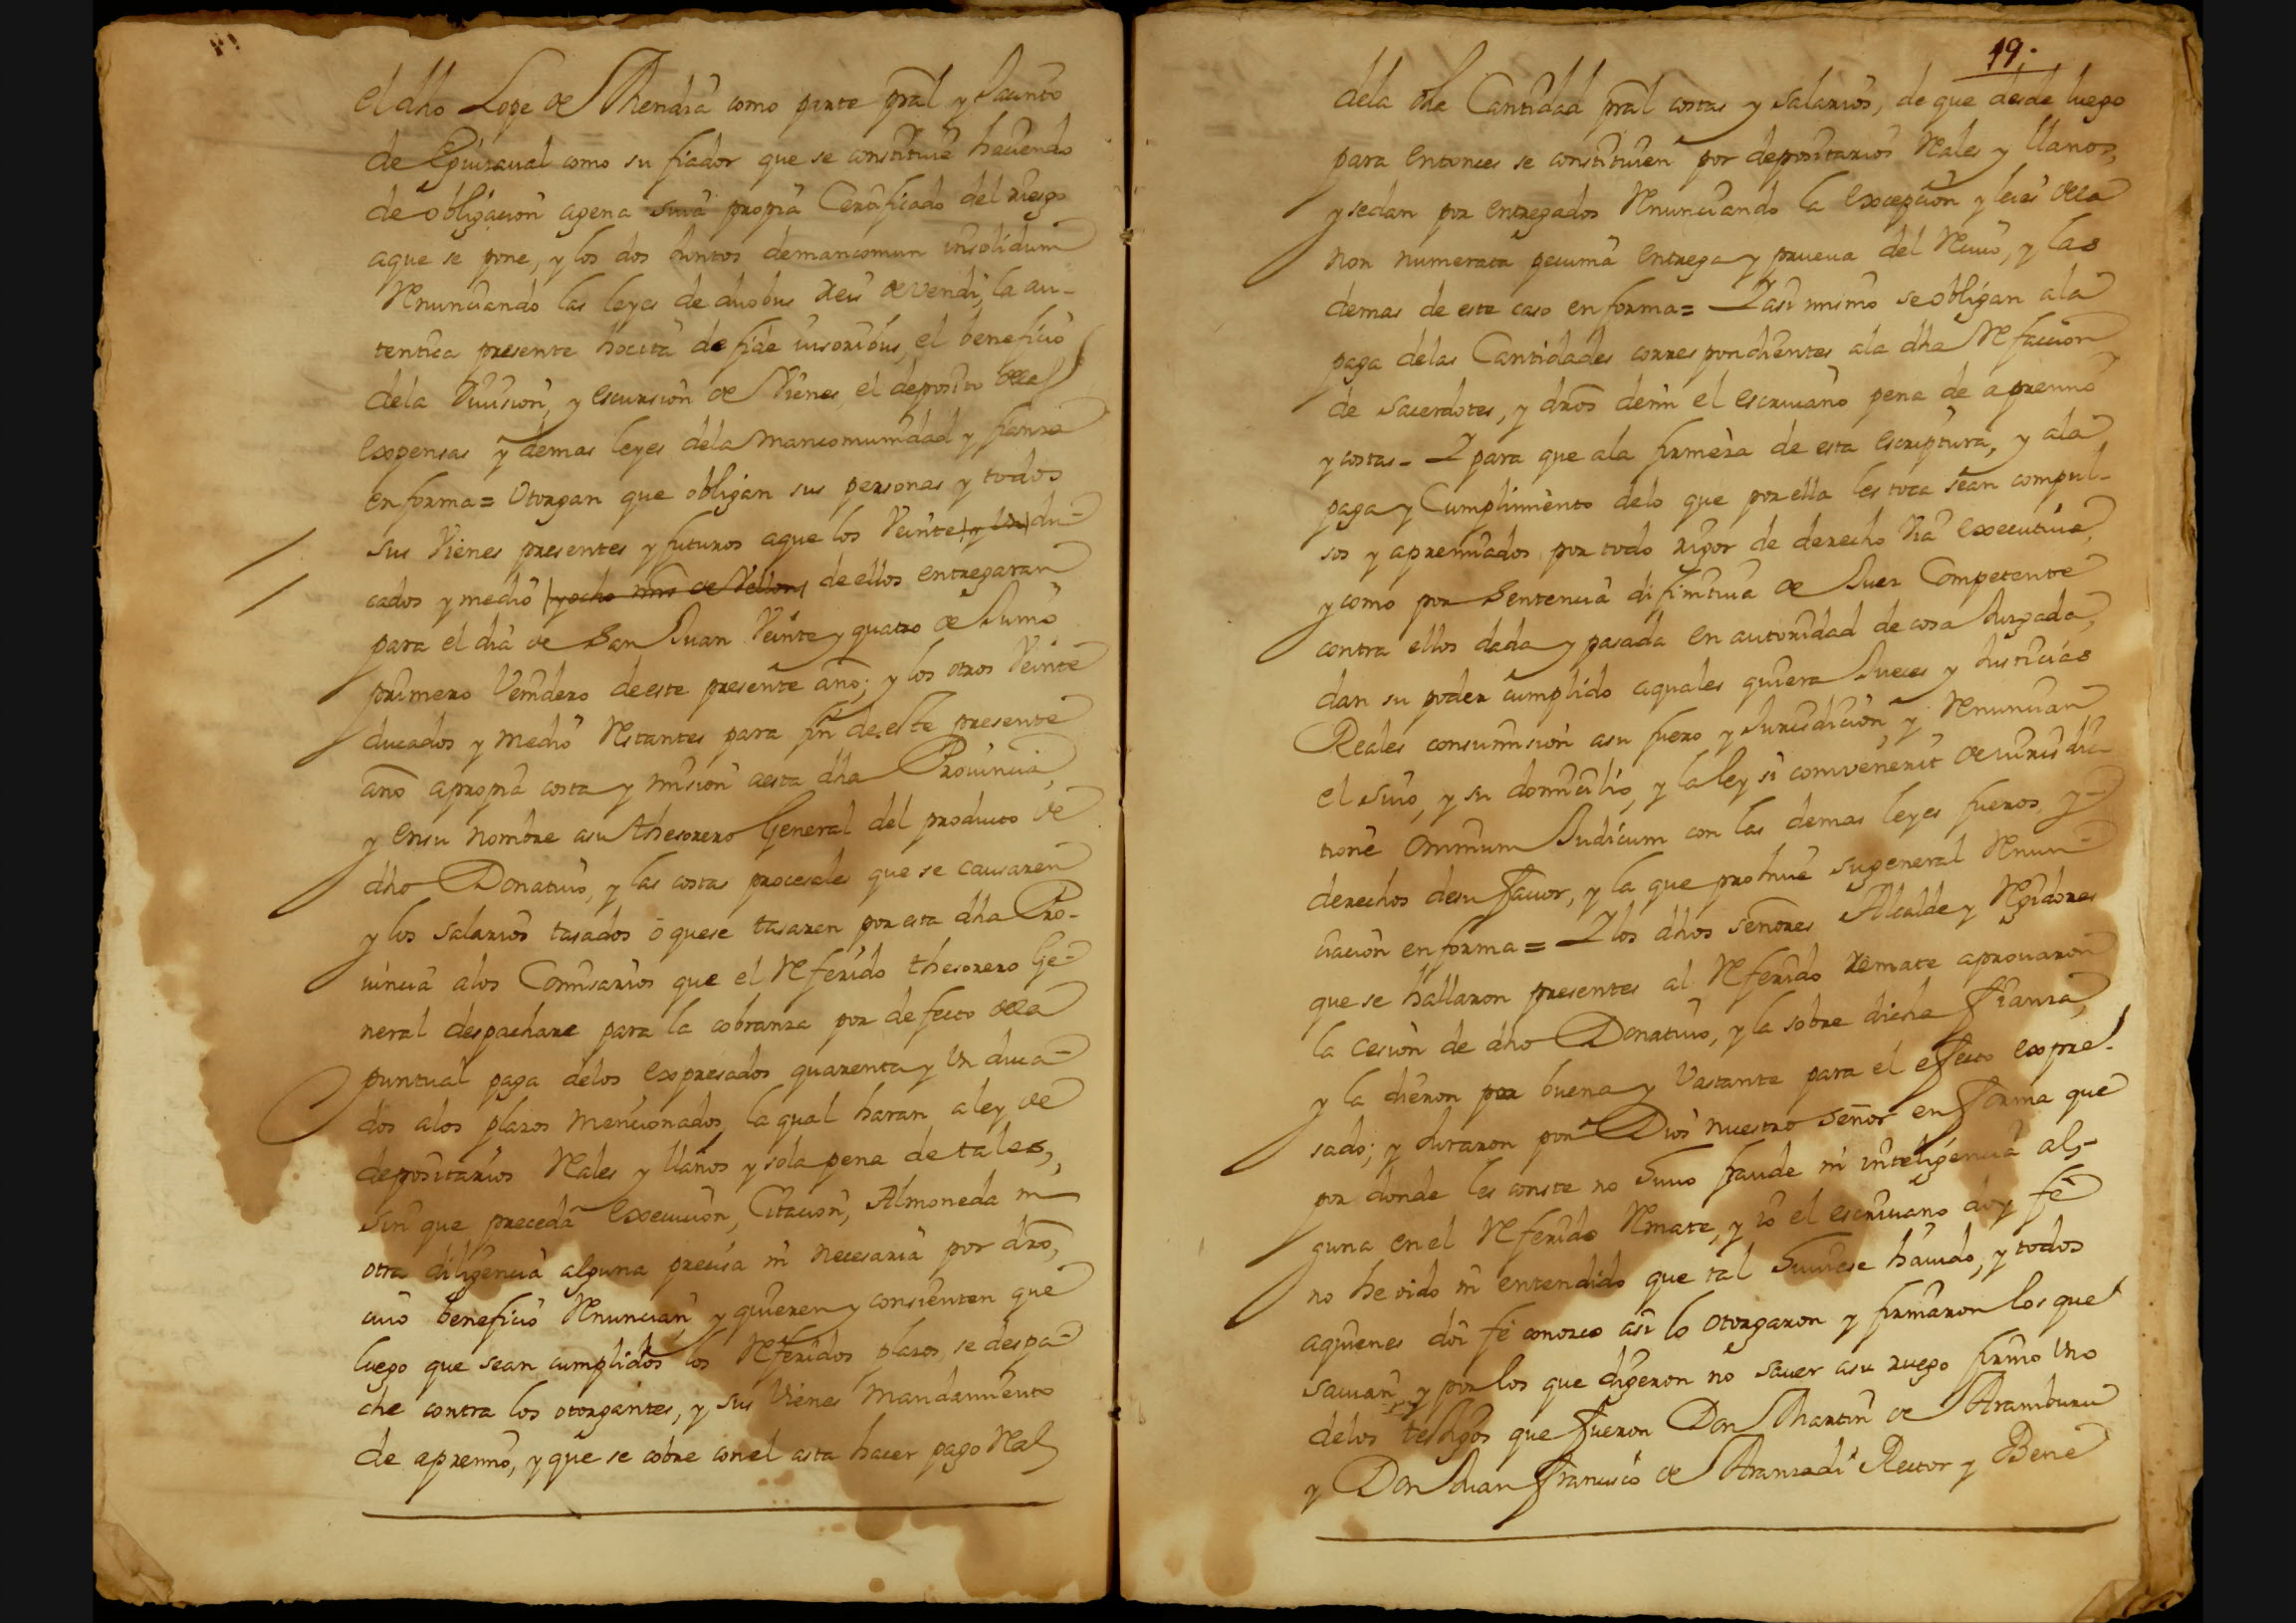 el dho Lope de Mendia como parte pral y Jacinto
de Eguisaual como su fiador que se constituie haciendo
de obligacion agena suia propia Certificado del riesgo
aque se pone, y los dos Juntos demancomun insolidum
Renunciando las leyes de duobus Reis devendi, la au-
tentica presente hocita de fide iusoribus, el beneficio
dela Diuision, y escursion de Vienes el deposito delas
expensas y demas leyes dela mancomunidad y fianza
en forma = Otorgan que obligan sus personas y todos
sus Vienes presentes y futuros aque los Veinte y Un du-
cados y medio y ocho mrs de Vellon de ellos entregaran
para el dia de San Juan Veinte y quatro de Junio
primero Venidero de este presente año; y los otros Veinte
ducados y medio Restantes para fin de este presente
año apropia costa y mision aesta dha Prouincia,
y ensu nombre asu thesorero General del producto de
dho Donatiuo, y las costas procesales que se causaren
y los salarios tasados o quese tasaren por esta dha Pro-
uincia alos Comisarios que el Referido thesorero Ge-
neral despachare para la cobranza por defecto dela
puntual paga delos expresados quarenta y Un duca-
dos alos plazos mencionados, la qual haran aley de
depositarios Rales y llanos y sola pena de tales,
sin que preceda execucion, Citacion, Almoneda ni
otra diligencia alguna precisa ni necesaria por dro,
cuio beneficio Renuncian y quieren y consienten que
luego que sean cumplidos los Referidos plazos, se despa-
che contra los otorgantes, y sus Vienes mandamiento
de apremio, y que se cobre conel asta hacer pago Ral
19.
dela dha Cantidad pral costas y salarios, de que desde luego
para entonces se constituien por depositarios Rales y llanos,
y sedan por entregados Renunciando la excepcion y leies dela
non numerata pecunia entrega y prueua del Reciuo, y las
demas de este caso en forma = Y asi mismo se obligan ala
paga delas Cantidades correspondientes ala dha Refaccion
de sacerdotes, y dros demi el escriuano pena de apremio
y costas - Y para que ala firmeza de esta escriptura, y ala
paga y Cumplimiento delo que por ella les toca sean compul-
sos y apremiados por todo rigor de derecho Via executiua,
y como por sentencia difinitiua de Juez Competente
contra ellos dada y pasada en autoridad de cosa Juzgada,
dan su poder cumplido aquales quiera Jueces y Justicias
Reales consumision asu fuero y Jurisdicion, y Renuncian
el suio, y su domicilio, y la ley si convenerit de iurisdic-
tione omnium Judicum con las demas leyes fueros, y
derechos desu fauor, y la que prohiue sugeneral Renun-
ciacion en forma = Y los dhos señores Alcalde y Regidores
que se hallaron presentes al Referido remate aprouaron
la cesion de dho Donatiuo, y la sobre dicha fianza,
y la dieron por buena y Vastante para el efecto expre-
sado; y Juraron por Dios nuestro señor en forma que
por donde les conste no huuo fraude ni inteligencia al-
guna en el Referido Remate, y io el escriuano doy fe
no he oido ni entendido que tal huuiese hauido, y todos
aquienes doi fe conozco asi lo otorgaron y firmaron los que
sauian, y por los que digeron no sauer asu ruego firmo Uno
delos testigos que fueron Don Martin de Aramburu
y Don Juan Francisco de Aranzadi Rector y Bene